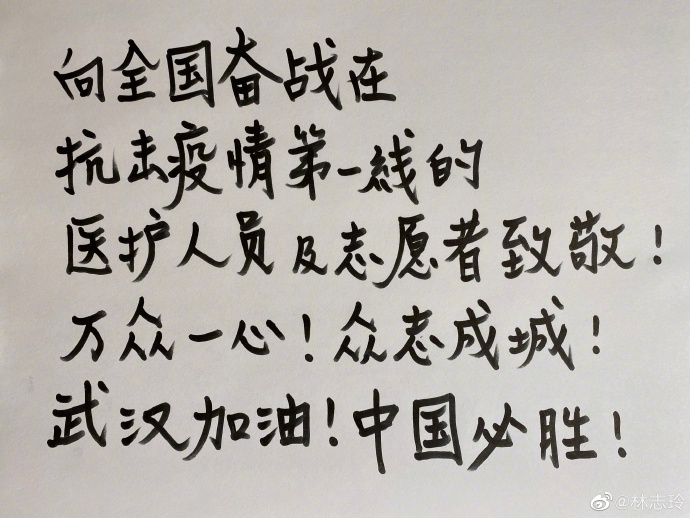 向全国奋战在
抗击疫情第一綫的
医护人员及志愿者致敬！
万众一心！众志成城！
武汉加油！中国必胜！
@林志玲